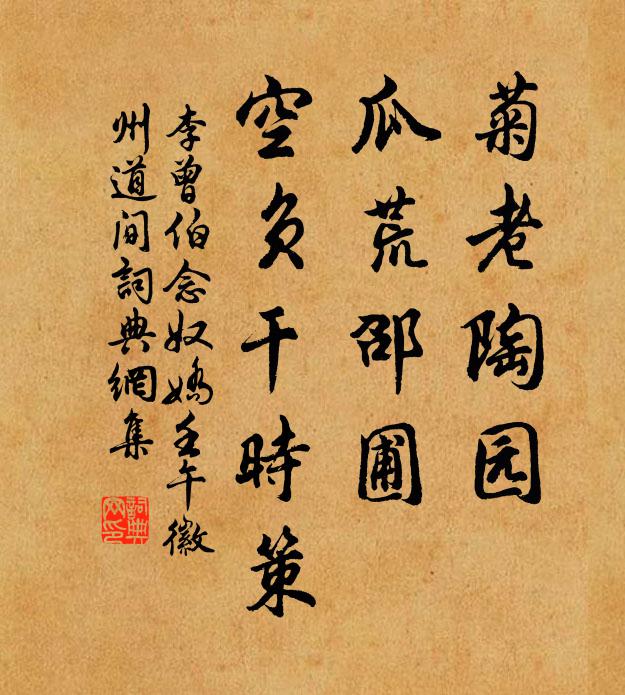 菊老陶园
瓜荒邵圃
空负干時策
李曾伯念奴嬌壬午徽
州道间詞典網集
詞典
网印